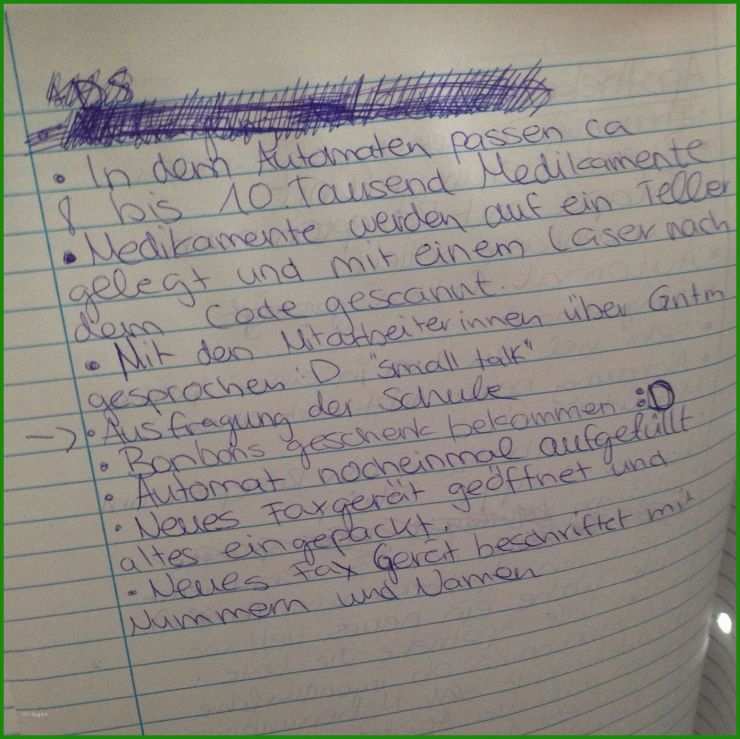 • In dem Automaten passen ca
8 bis 10 Tausend Medikamente
• Medikamente werden auf ein Teller
gelegt und mit einem Laser nach
dem Code gescannt.
• Mit den Mitarbeiterinnen über Gntm
gesprochen :D "small talk"
→ • Ausfragung der Schule
• Bonbons geschenk bekommen :D
• Automat nocheinmal aufgefüllt
• Neues Faxgerät geöffnet und
altes eingepackt.
• Neues Fax Gerät beschriftet mit
Nummern und Namen